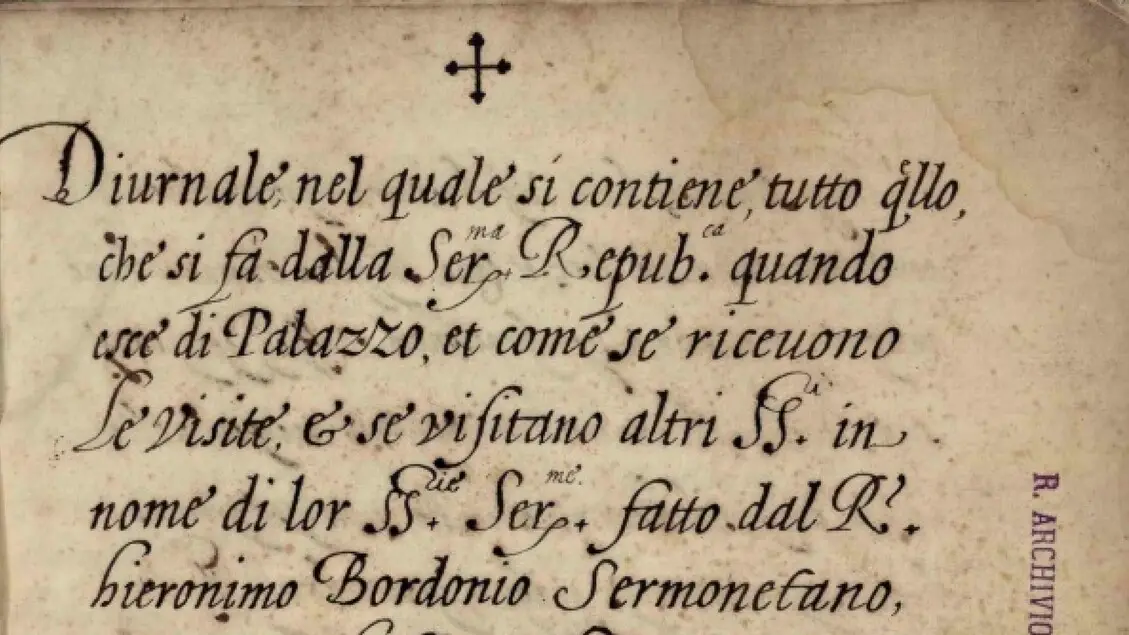 Diurnale, nel quale si contiene, tutto qllo,
che si fa dalla Ser.ma Repub.ca quando
esce di Palazzo, et come se riceuono
Le visite, & se visitano altri SS.ri in
nome di lor SS.rie Ser.me fatto dal R.
hieronimo Bordonio Sermonetano,
R. ARCHIVIO